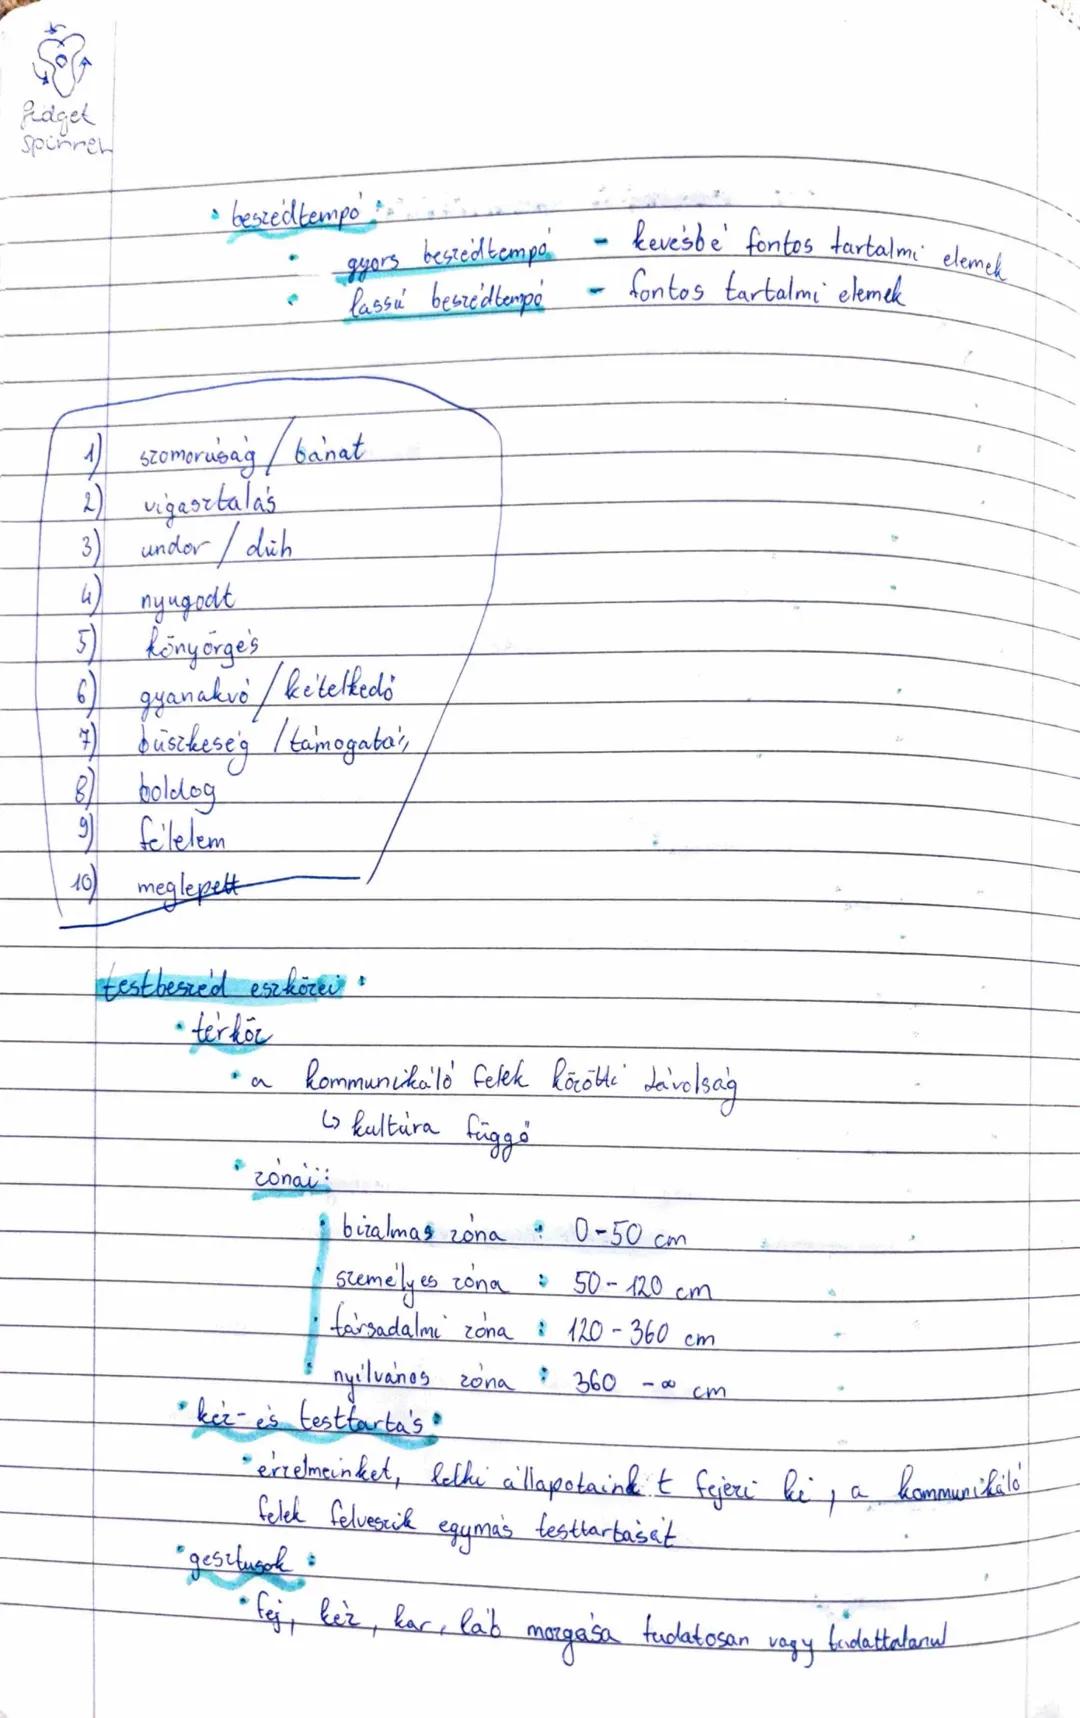 fidget
spinner
• beszédtempó:
• gyors beszédtempó - kevésbé fontos tartalmi elemek
• lassú beszédtempó - fontos tartalmi elemek
1) szomorúság / bánat
2) vigasztalás
3) undor / düh
4) nyugodt
5) könyörgés
6) gyanakvó / kételkedő
7) büszkeség / támogatás
8) boldog
9) félelem
10) meglepett
testbeszéd eszközei:
• térköz
• a kommunikáló felek közötti távolság
↳ kultúra függő
• zónái:
• bizalmas zóna : 0-50 cm
• személyes zóna : 50-120 cm
• társadalmi zóna : 120-360 cm
• nyilvános zóna : 360 -∞ cm
• kéz- és testtartás:
• érzelmeinket, lelki állapotainkat fejezi ki, a kommunikáló
felek felveszik egymás testtartását
• gesztusok:
• fej, kéz, kar, láb mozgása tudatosan vagy tudattalanul